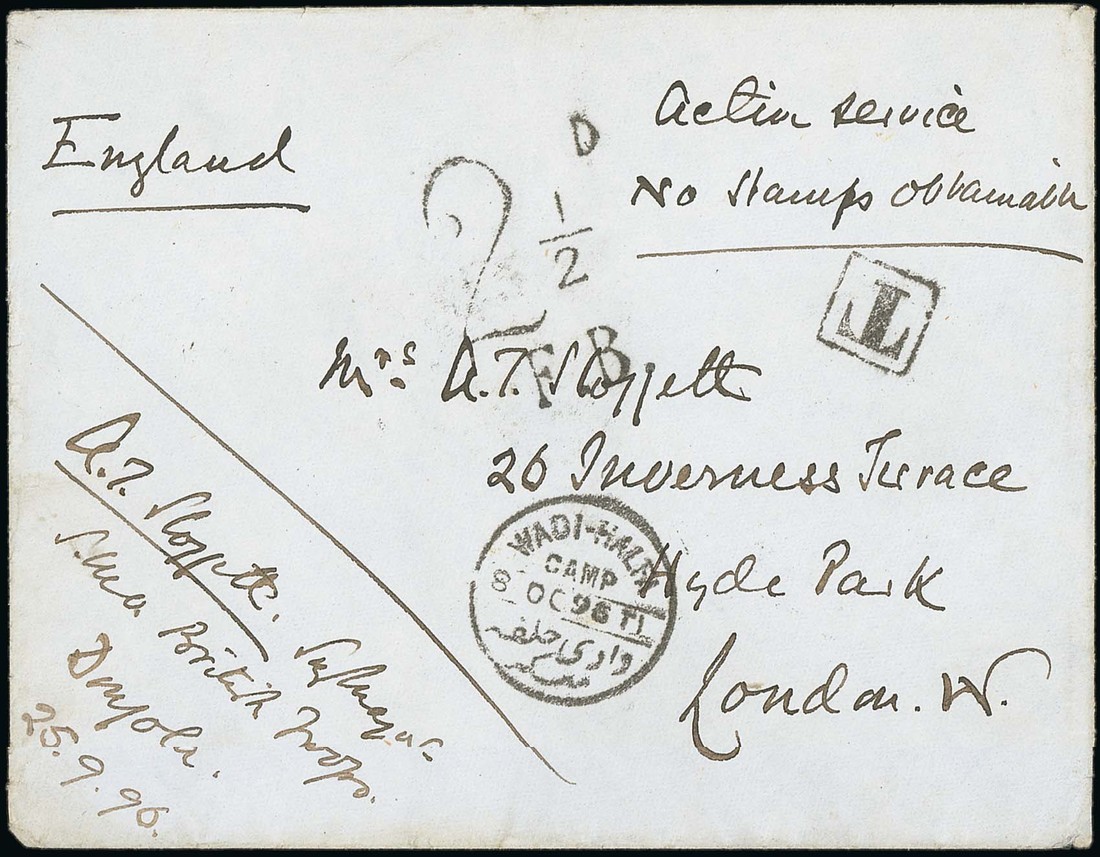 England
Active service
No Stamps obtainable
2 1/2 D
F.B.
T
Mrs. A.T. Sloggett
26 Inverness Terrace
Hyde Park
London. W.
WADI-HALFA
CAMP
8 OC 96 T1
وادي حلفه
معسكر
A.T. Sloggett.
British Troops.
Dongola.
25.9.96.